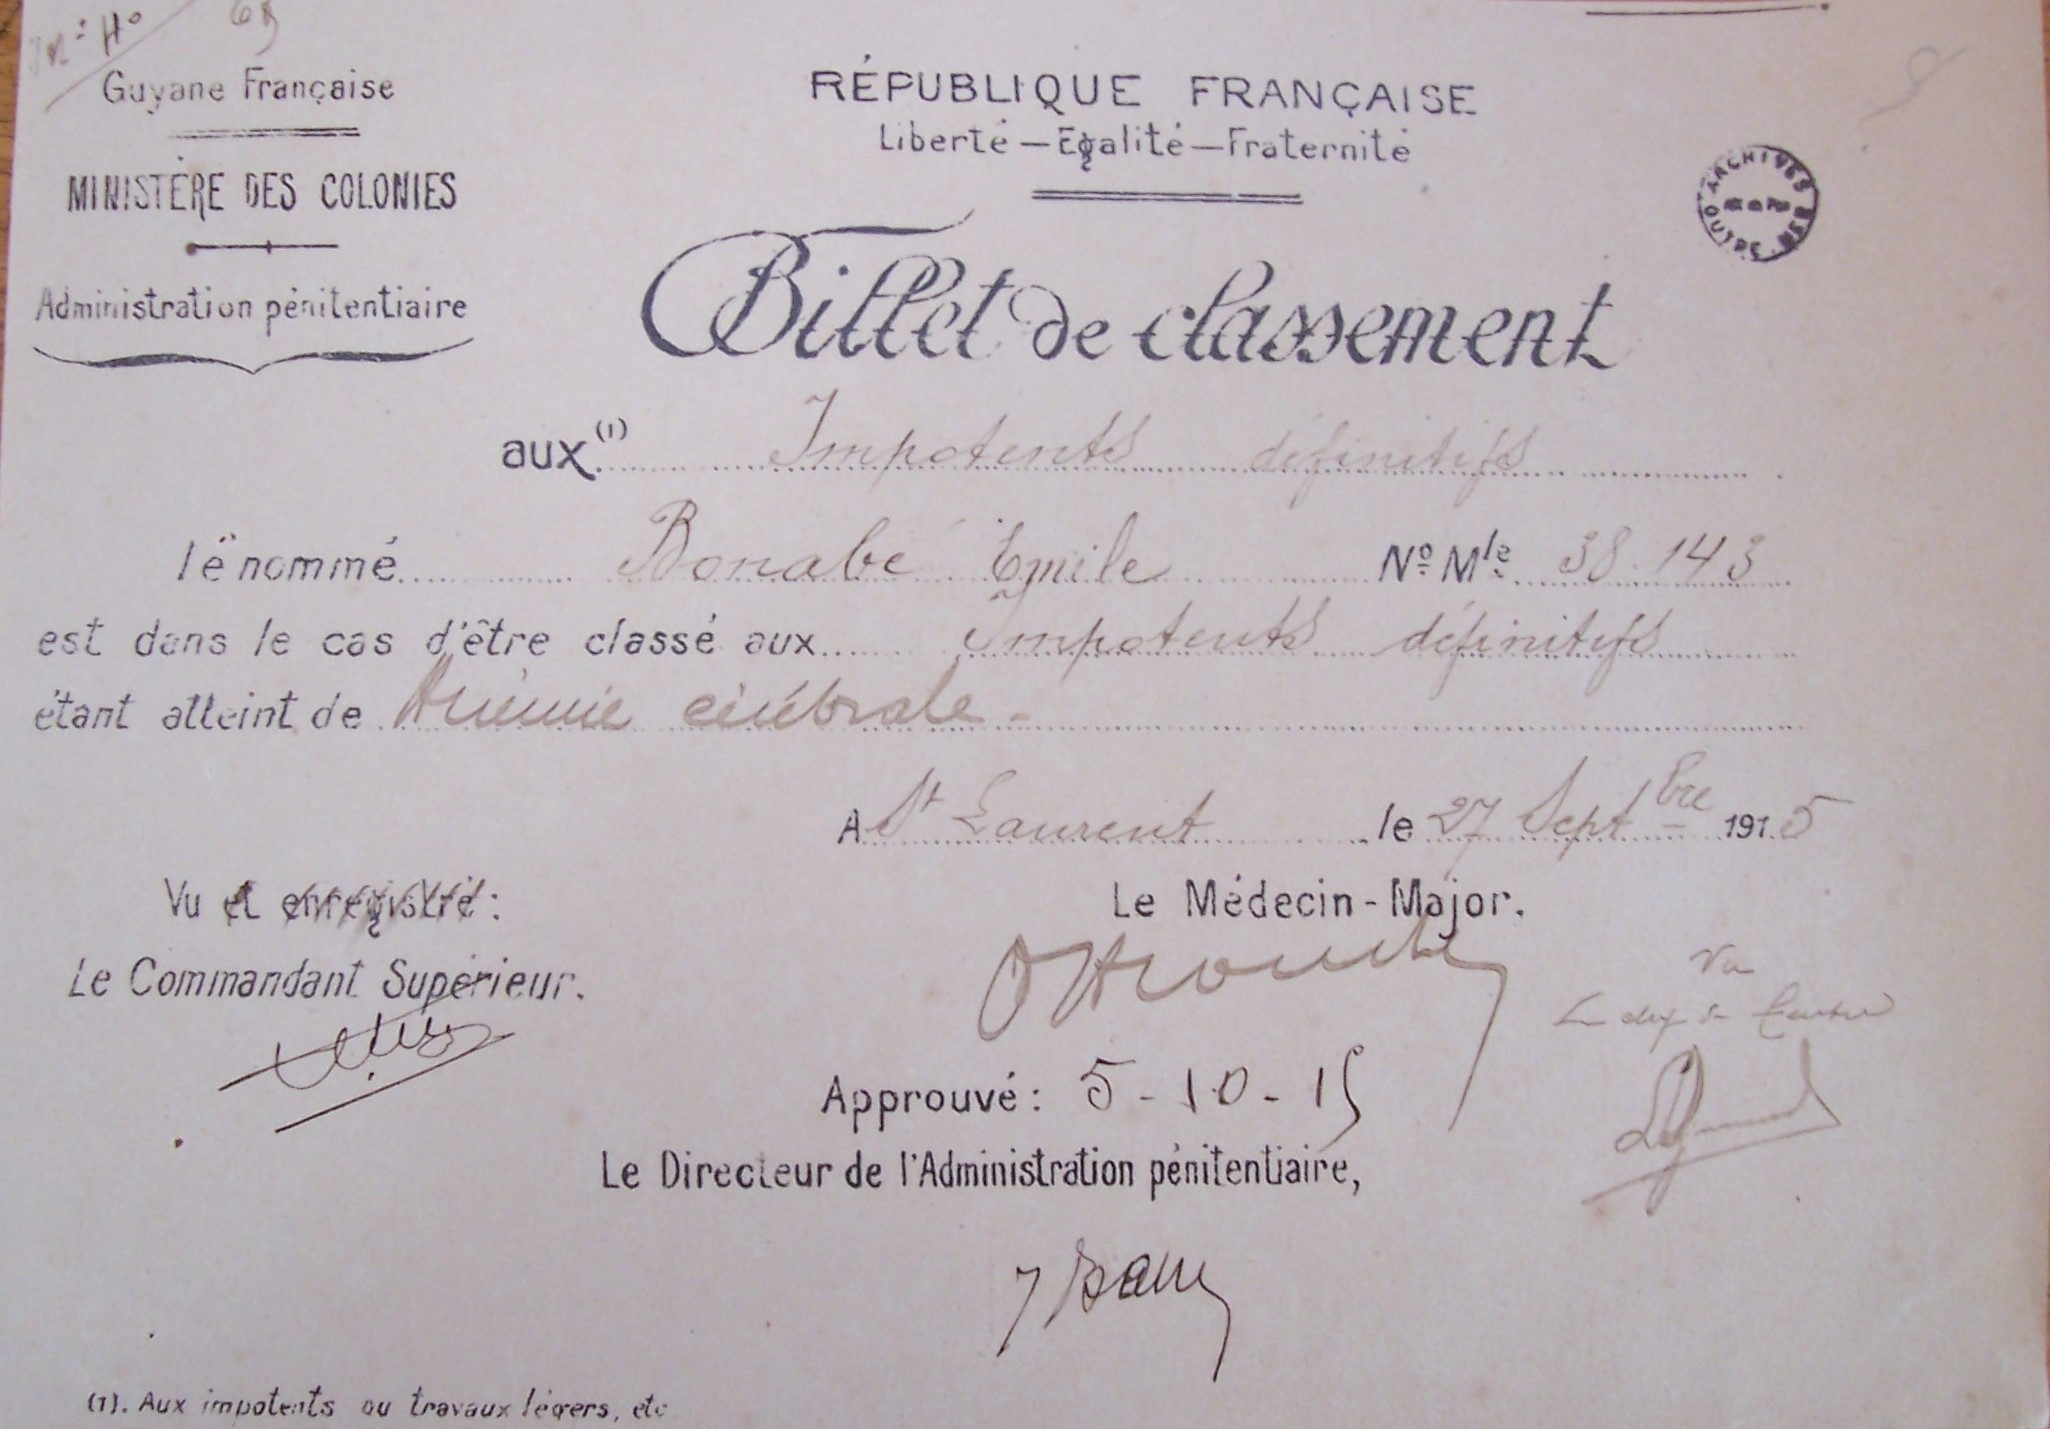 Guyane Française
MINISTÈRE DES COLONIES
Administration pénitentiaire
RÉPUBLIQUE FRANÇAISE
Liberté — Egalité — Fraternité
ARCHIVES OUTRE MER
Billet de classement
aux (1) Impotents définitifs
le nommé Bonabé Emile Nº Mle 38.143
est dans le cas d'être classé aux Impotents définitifs
étant atteint de Anémie cérébrale -
A St Laurent le 27 Septbre 1915
Vu et enregistré :
Le Médecin - Major.
Le Commandant Supérieur.
Vu
Approuvé : 5 - 10 - 15
Le Directeur de l'Administration pénitentiaire,
(1). Aux impotents ou travaux légers, etc